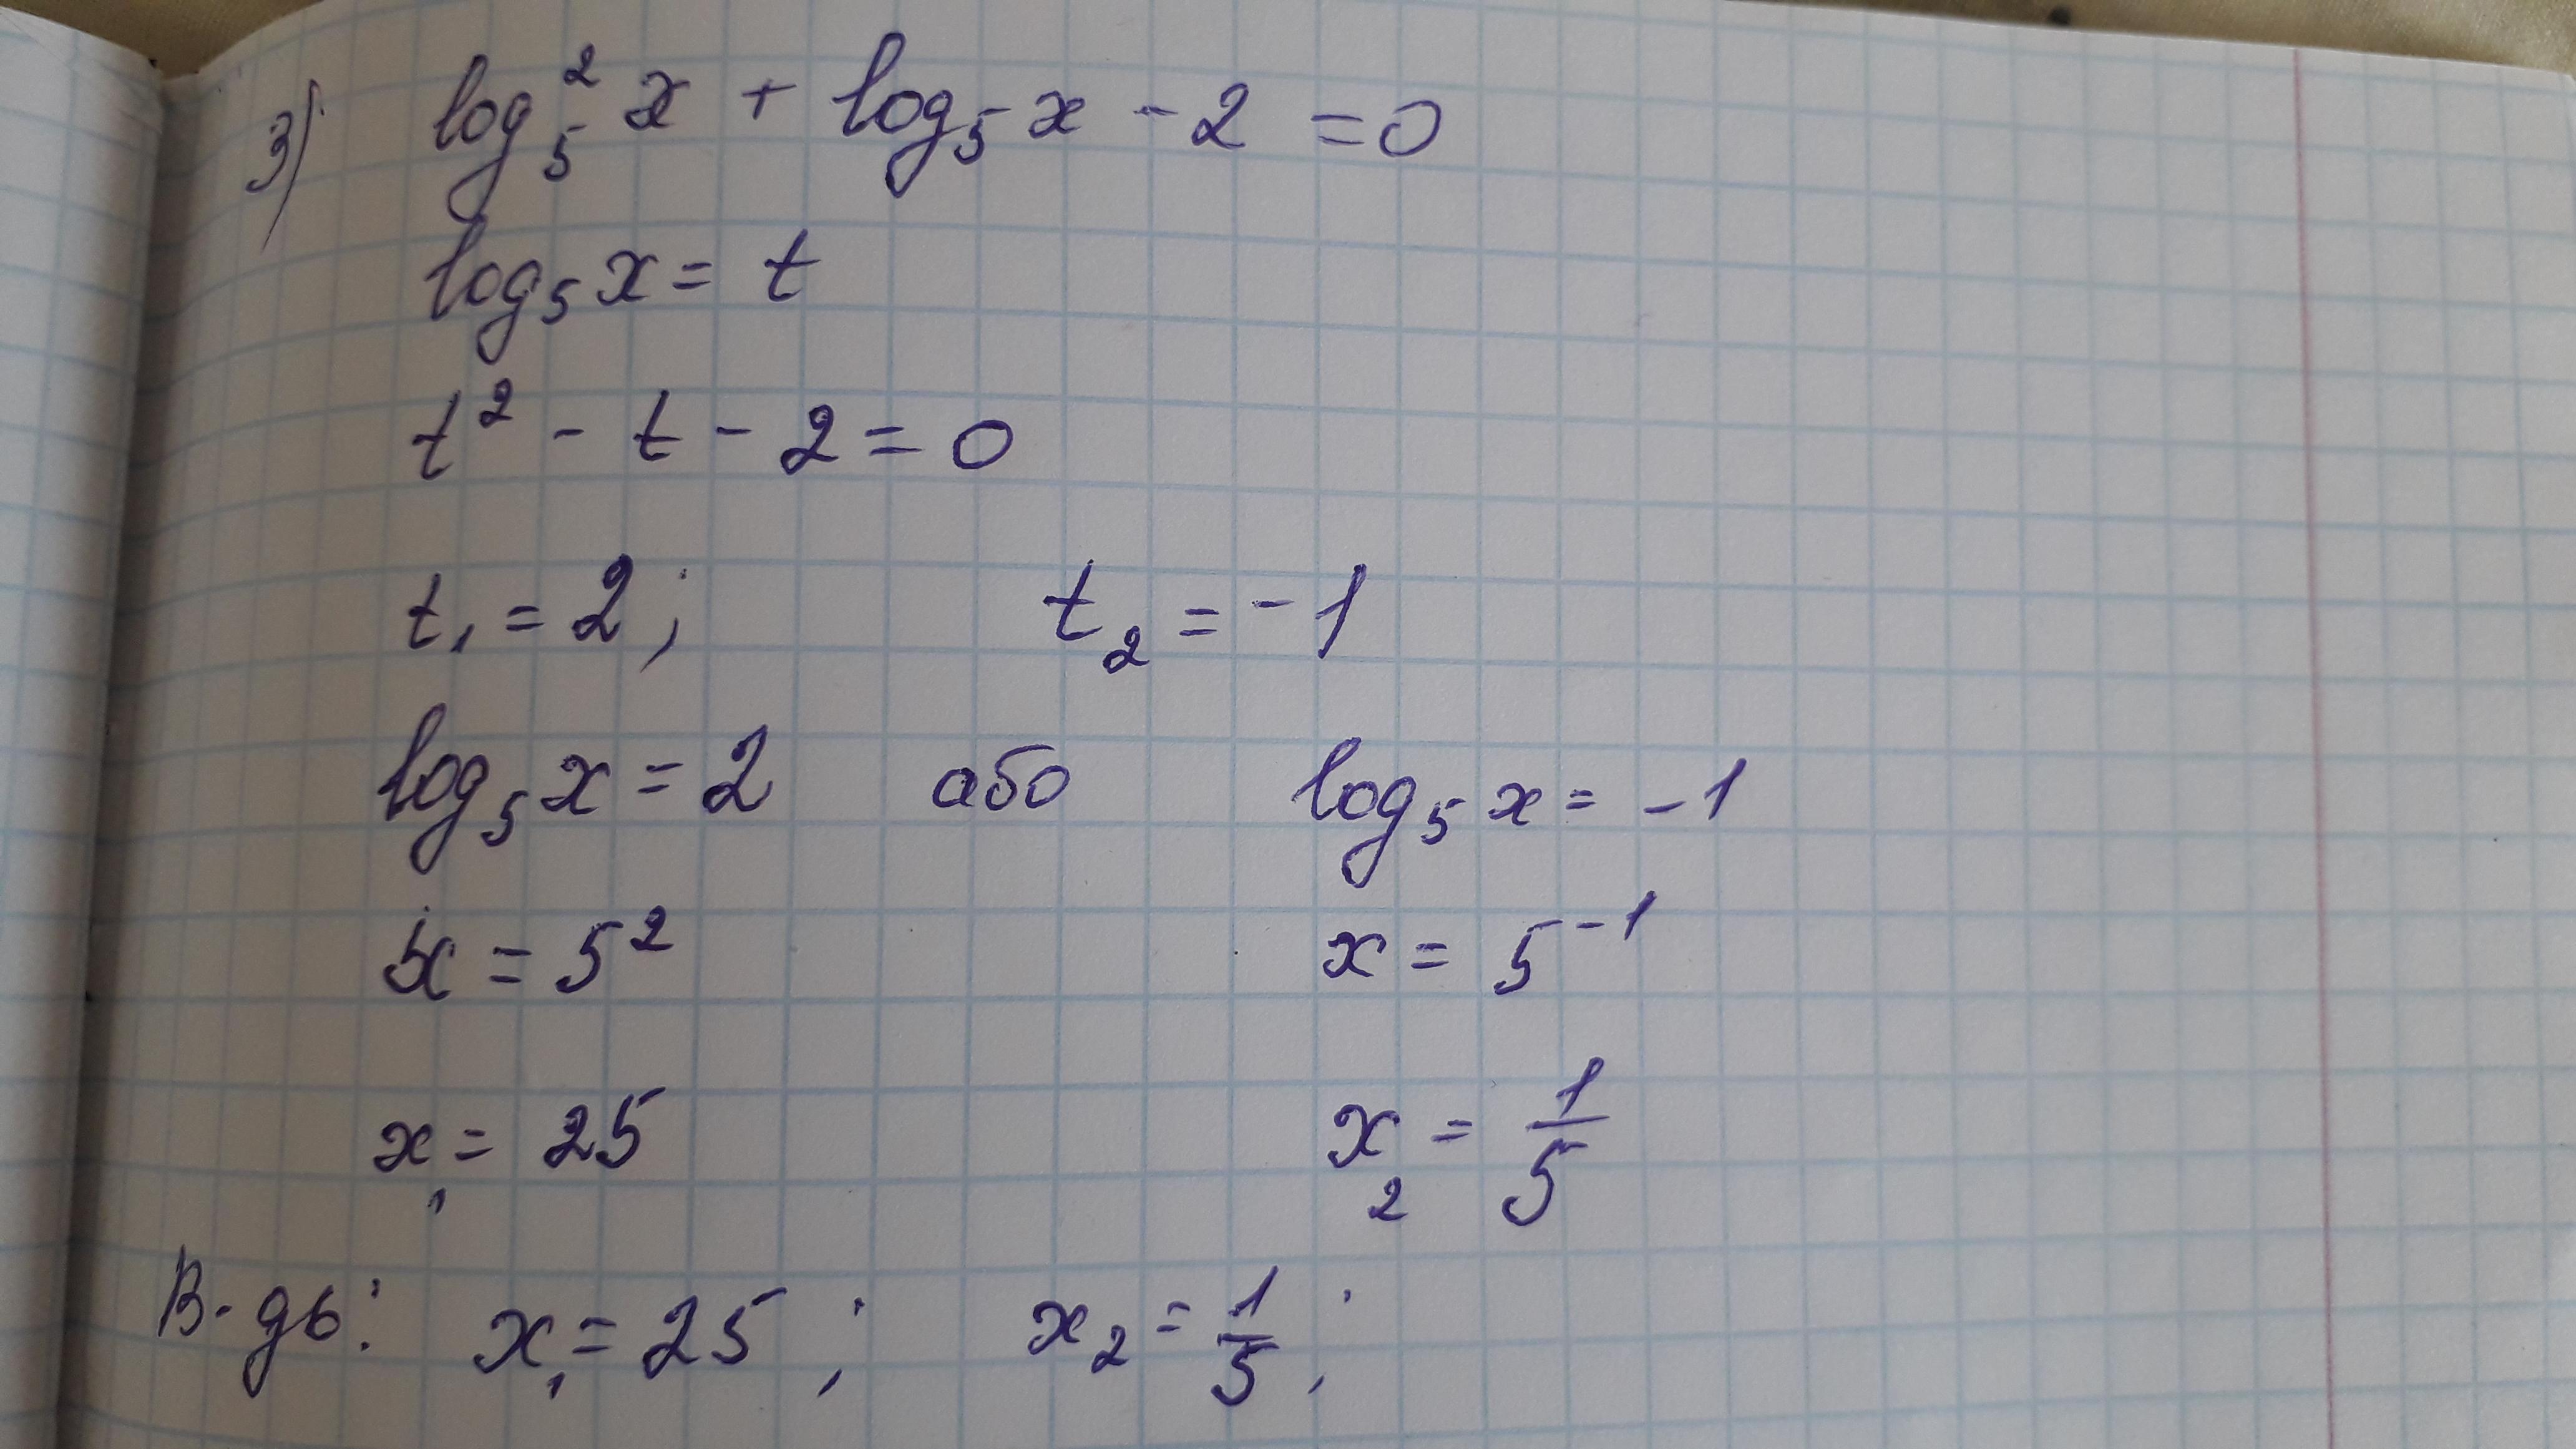 3) log₅² x + log₅ x - 2 = 0
log₅ x = t
t² - t - 2 = 0
t₁ = 2; t₂ = -1
log₅ x = 2 або log₅ x = -1
x = 5² x = 5⁻¹
x₁ = 25 x₂ = 1/5
В-дь: x₁ = 25; x₂ = 1/5;